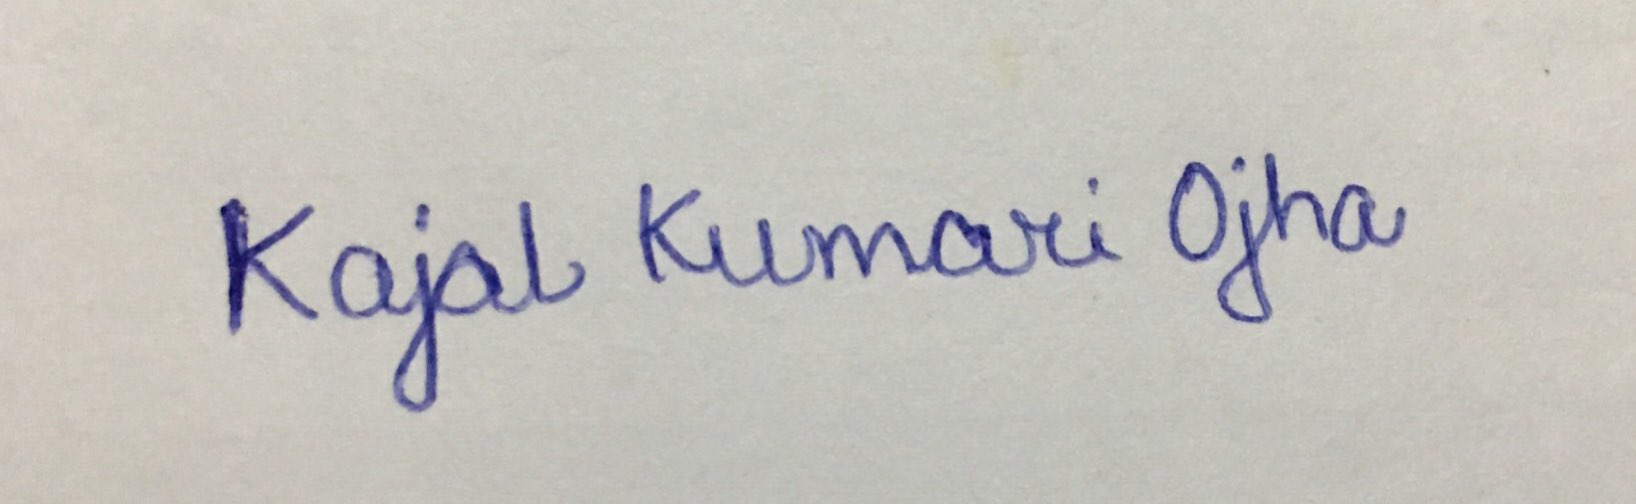 Kajal Kumari Ojha